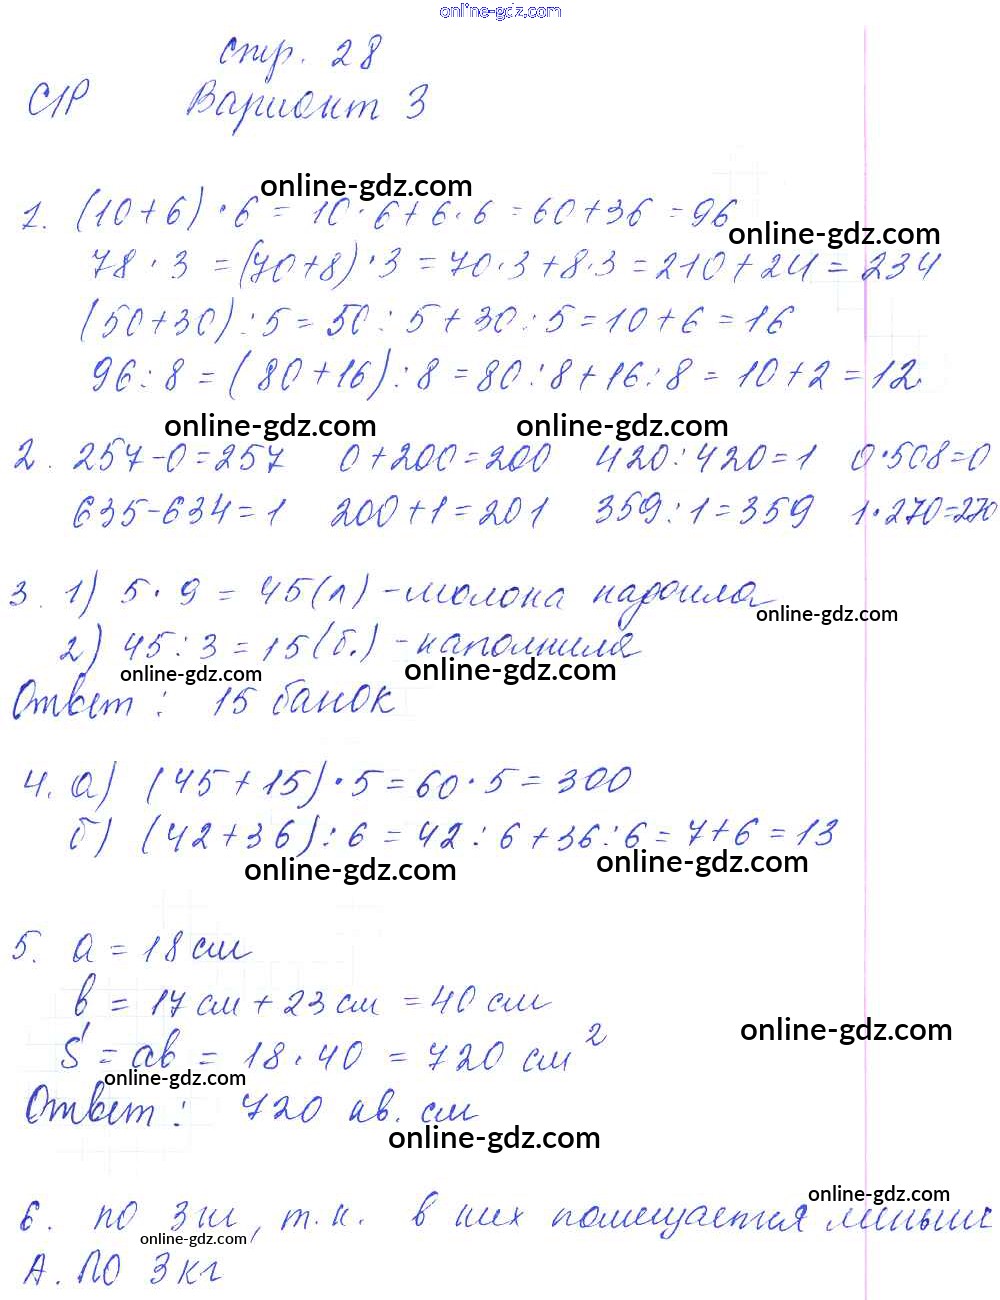 online-gdz.com
стр. 28
С1Р Вариант 3
online-gdz.com
1. (10+6)·6=10·6+6·6=60+36=96
online-gdz.com
78·3=(70+8)·3=70·3+8·3=210+24=234
(50+30):5=50:5+30:5=10+6=16
96:8=(80+16):8=80:8+16:8=10+2=12.
online-gdz.com online-gdz.com
2. 257-0=257 0+200=200 420:420=1 0·508=0
635-634=1 200+1=201 359:1=359 1·270=270
3. 1) 5·9=45(л)-молока надоила
online-gdz.com
2) 45:3=15(б.)-наполнила
online-gdz.com online-gdz.com
Ответ: 15 банок
4. а) (45+15)·5=60·5=300
б) (42+36):6=42:6+36:6=7+6=13
online-gdz.com online-gdz.com
5. a=18см
b=17см+23см=40см
online-gdz.com
S=ab=18·40=720 см²
online-gdz.com
Ответ: 720 кв. см
online-gdz.com
online-gdz.com
6. по 3кг, т.к. в них помещается меньше
online-gdz.com
А. По 3кг